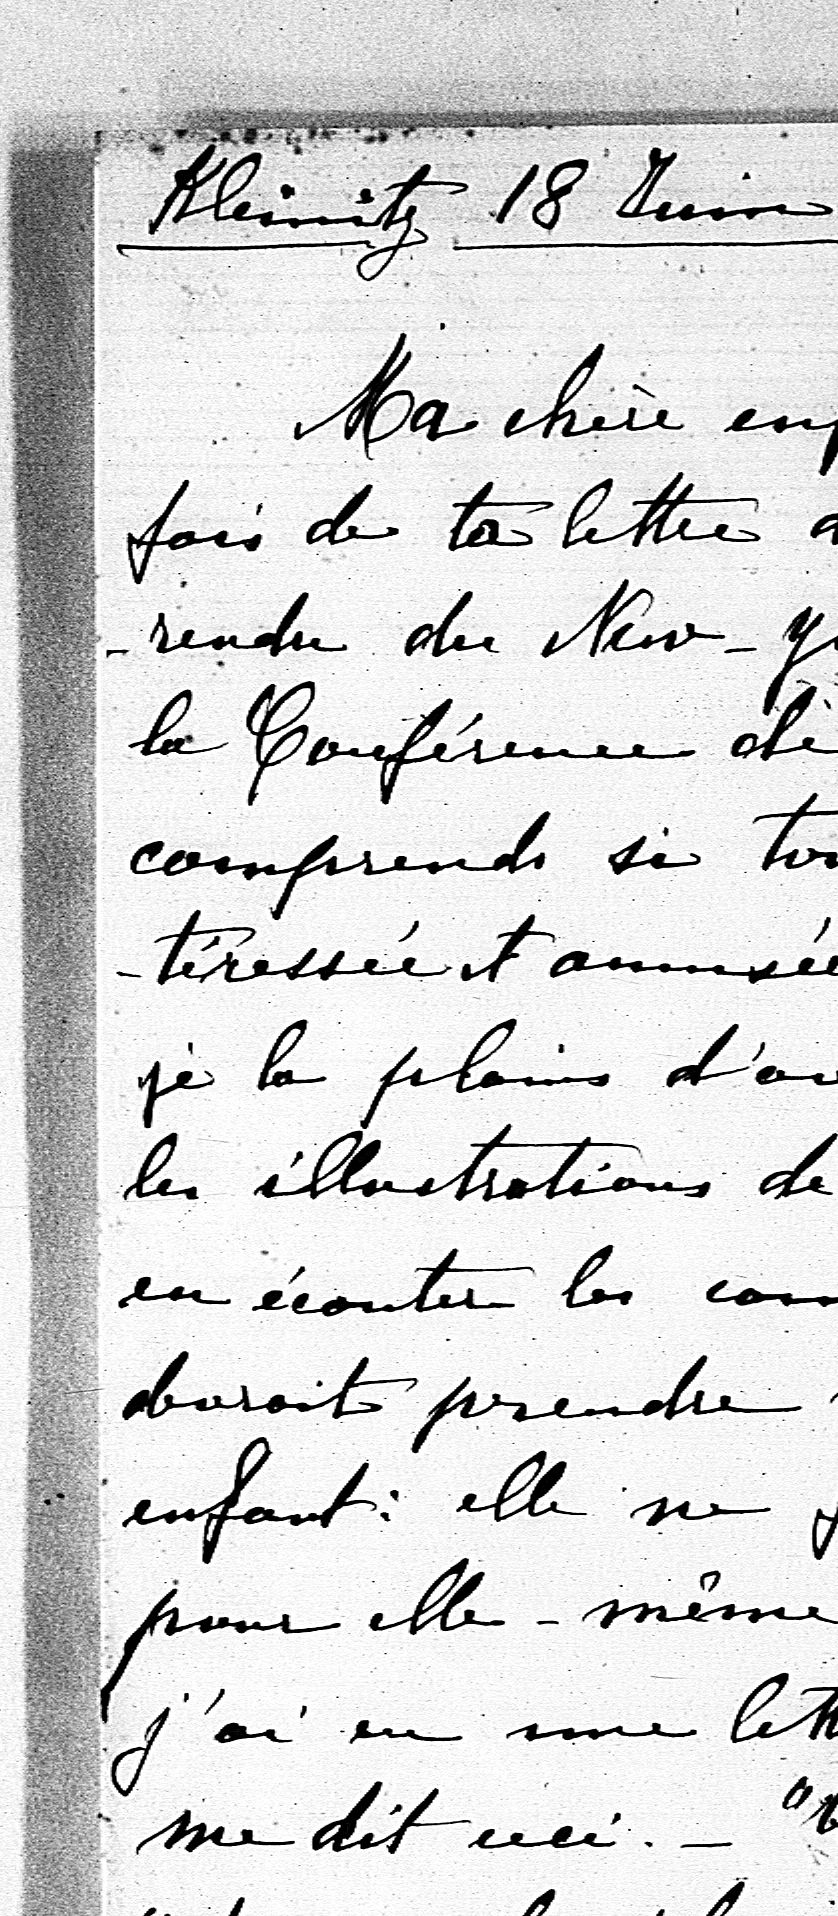 Kleinitz 18 Juin
Ma chère enf
fois de ta lettre
-rendu du New-Yo
la Conférence de
comprends si tou
-téressée et amusée
je la plains d'av
les illustrations de
en écouter les com
devrait prendre
enfant: elle ne
pour elle-même
j'ai eu une lett
me dit ceci. - "